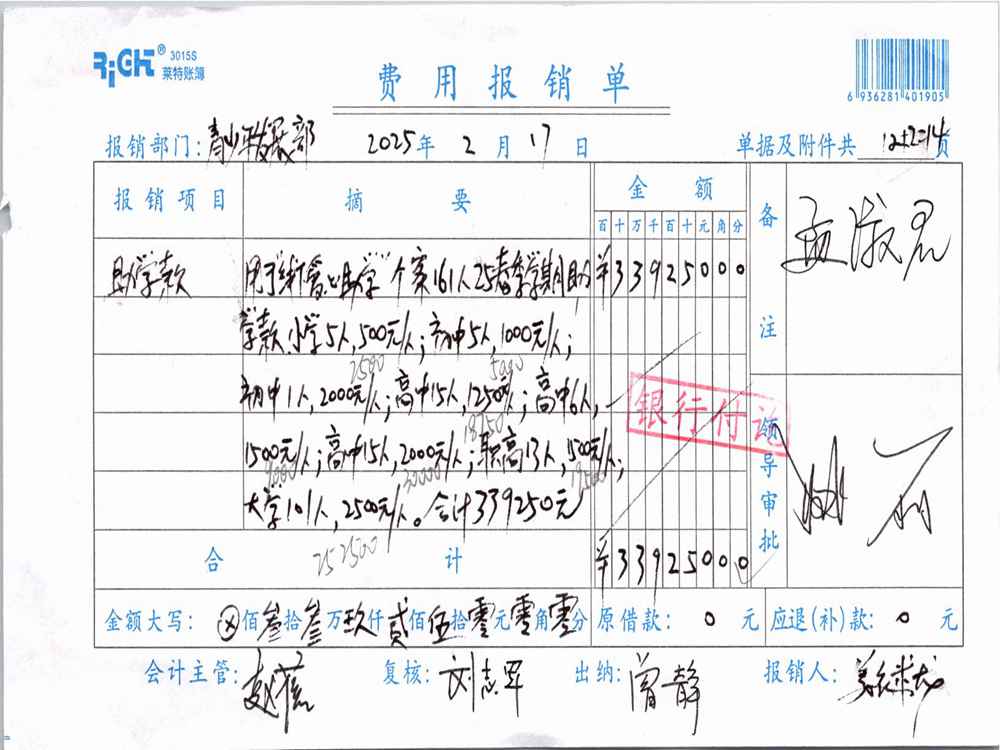 RiGHT® 3015S
莱特账簿
费用报销单
6 936281 401905
报销部门: 青少年发展部 2025年 2 月 17 日 单据及附件共 12+2=14 页
报销项目 摘要 金额 备注
百十万千百十元角分
助学款 用于 助学 个赛161人25春季学期助 ¥33925000
学款,小学5人,500元/人;初中5人,1000元/人;
2500 5000
初中1人,2000元/人;高中15人,1250元/人;高中6人,
18750
1500元/人;高中15人,2000元/人;职高13人,1500元/人;
9000 30000 19500
大学101人,2500元/人。合计339250元
252500
银行付讫
领导审批
合计 ¥33925000
金额大写: ⊗佰叁拾叁万玖仟贰佰伍拾零元零角零分 原借款: 0 元 应退(补)款: 0 元
会计主管: 复核: 刘志军 出纳: 曾静 报销人: